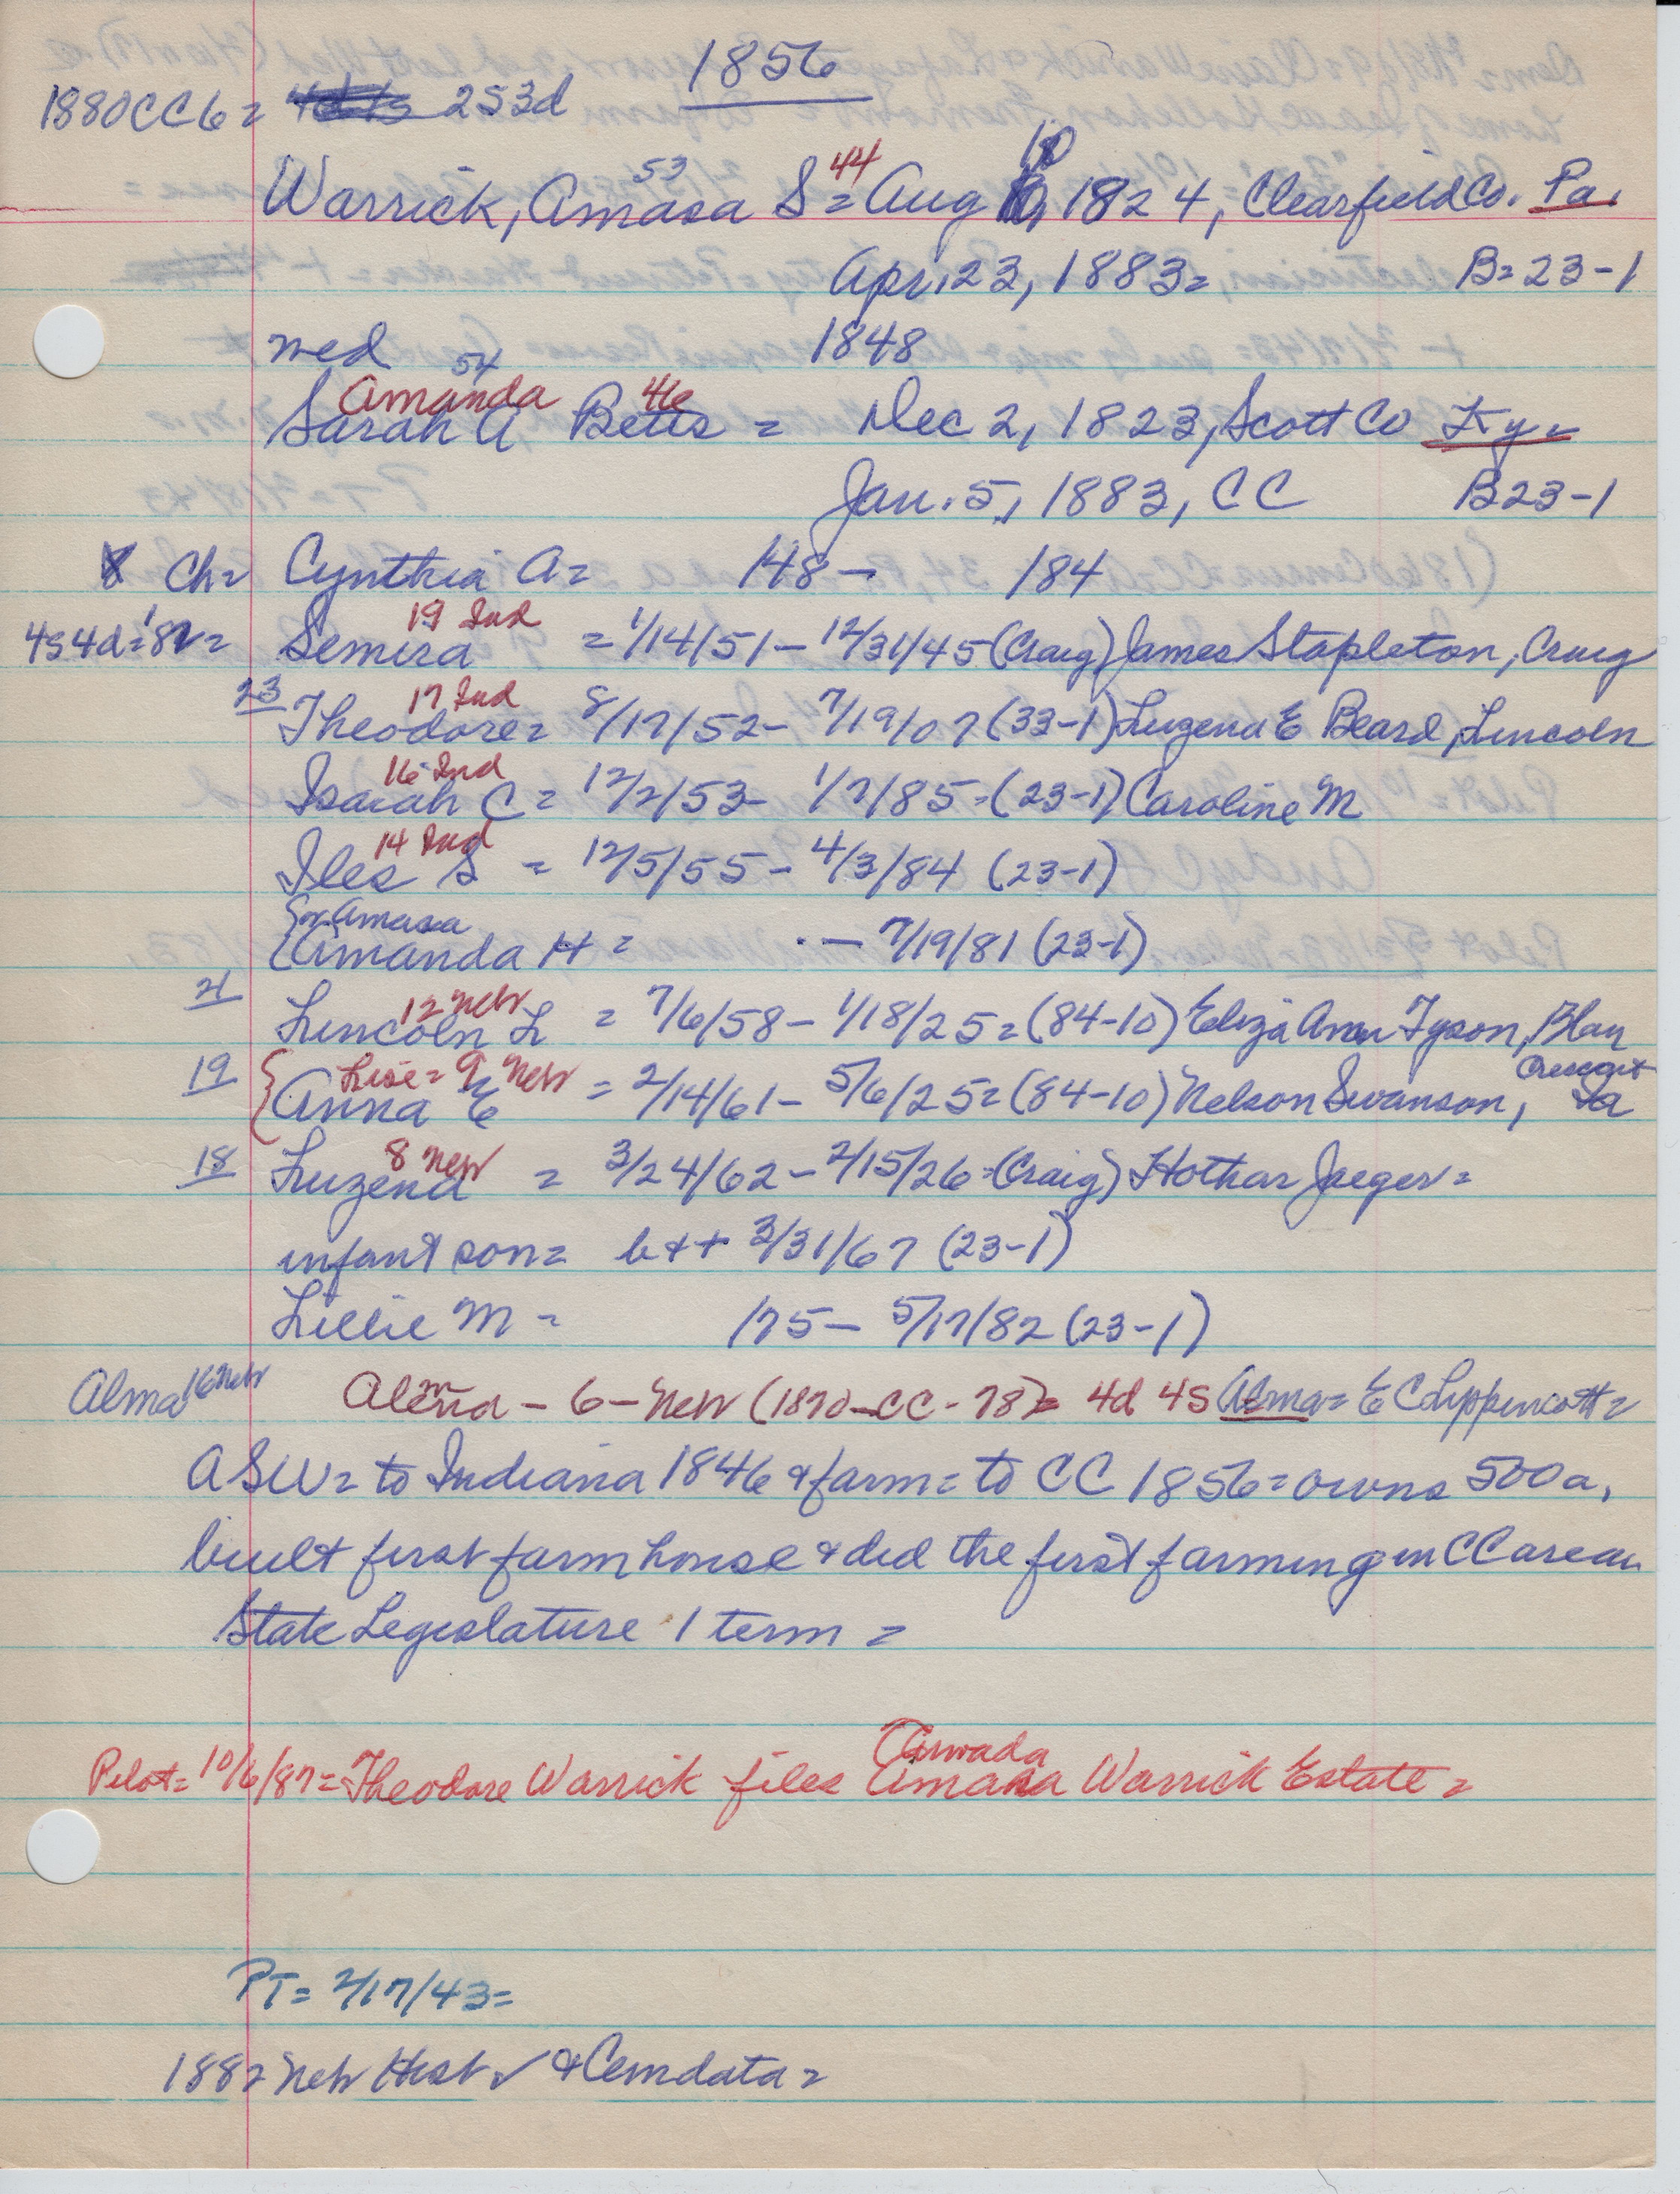 1856
1880CC6= 2S3d
53 44 10
Warrick, Amasa S= Aug 10, 1824, Clearfield Co. Pa.
Apr. 23, 1883= B=23-1
med 1848
54 Amanda 46
Sarah A Betts = Dec 2, 1823, Scott Co Ky=
Jan. 5, 1883, CC B23-1
8 Ch= Cynthia A= 148 — 184
19 Ind
4s4d='82= Semira = 1/14/51 — 12/31/45 (Craig) James Stapleton, Craig
23 17 Ind
Theodore= 8/17/52 — 7/19/07 (33-1) Luzena E Beard, Lincoln
16 Ind
Isaiah C = 12/2/53 - 1/7/85 = (23-1) Caroline M
14 Ind
Iles S = 12/5/55 - 4/3/84 (23-1)
{or Amasa
{Amanda H = — 7/19/81 (23-1)
21 12 Neb
Lincoln L = 7/6/58 — 1/18/25 = (84-10) Eliza Ann Tyson, Blair
19 { Lise= 9 Neb Crescent
Anna E = 2/14/61 — 5/6/25 = (84-10) Nelson Swanson, Ia
18 8 Neb
Luzena = 3/24/62 — 2/15/26 = (Craig) Hothar Jaeger =
infant son= b & + 3/31/67 (23-1)
Lillie M = 175 — 5/17/82 (23-1)
Alma 16 Neb Alema - 6 - Neb (1870-CC-78)= 4d 4s Alma= E C Lippencott=
ASW= to Indiana 1846 & farm= to CC 1856= owns 500a,
built first farm house & did the first farming in CC area
State Legislature 1 term =
Pilot= 10/6/87= Theodore Warrick files Amasa Warrick Estate =
PT= 2/17/43=
1882 Neb Hist ✓ & Cemdata=